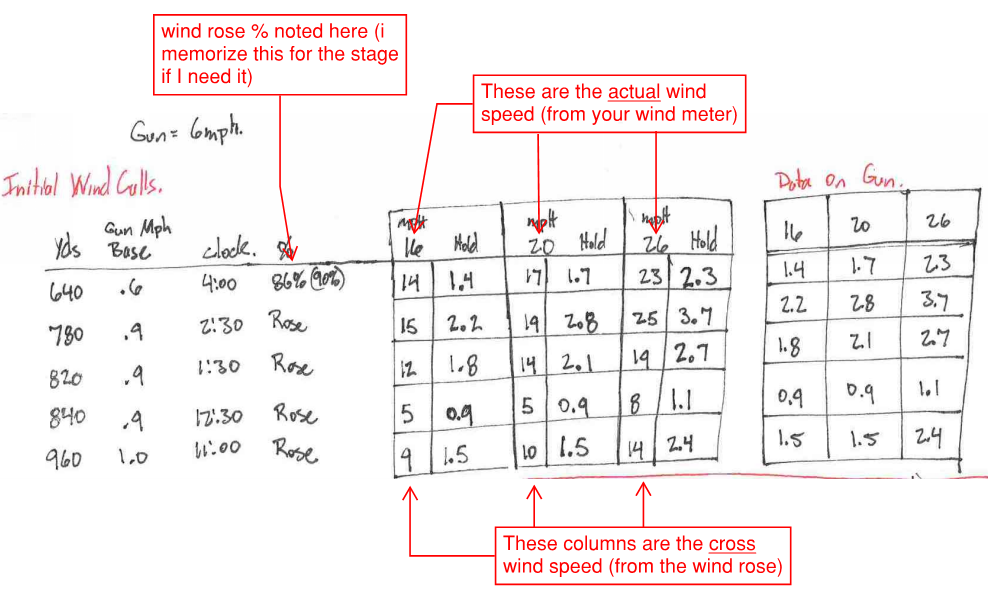 wind rose % noted here (i
memorize this for the stage
if I need it)
These are the actual wind
speed (from your wind meter)
Gun = 6mph.
Initial Wind Calls.
Data on Gun.
Gun Mph mpH mpH mpH
Yds Base clock. % 16 Hold 20 Hold 26 Hold 16 20 26
640 .6 4:00 86% (90%) 14 1.4 17 1.7 23 2.3 1.4 1.7 2.3
780 .9 2:30 Rose 15 2.2 19 2.8 25 3.7 2.2 2.8 3.7
820 .9 1:30 Rose 12 1.8 14 2.1 19 2.7 1.8 2.1 2.7
840 .9 12:30 Rose 5 0.9 5 0.9 8 1.1 0.9 0.9 1.1
960 1.0 11:00 Rose 9 1.5 10 1.5 14 2.4 1.5 1.5 2.4
These columns are the cross
wind speed (from the wind rose)